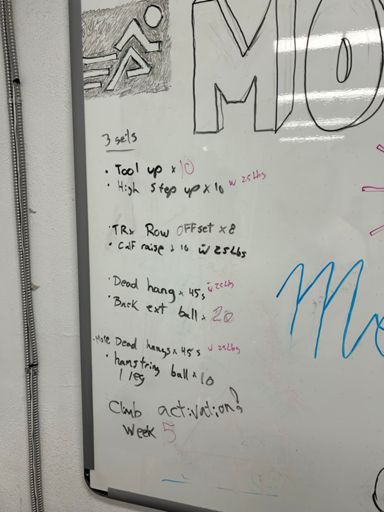 MO
3 sets
• Tool up x 10
• High step up x 10 w 25 lbs
• TRx Row OFFset x 8
• Calf raise x 10 w 25 Lbs
• Dead hang x 45s w 25 Lbs
• Back ext ball x 20
• More Dead hangs x 45s w 25 lbs
• hamstring ball x 10
1 leg
Climb activation?
Week 5